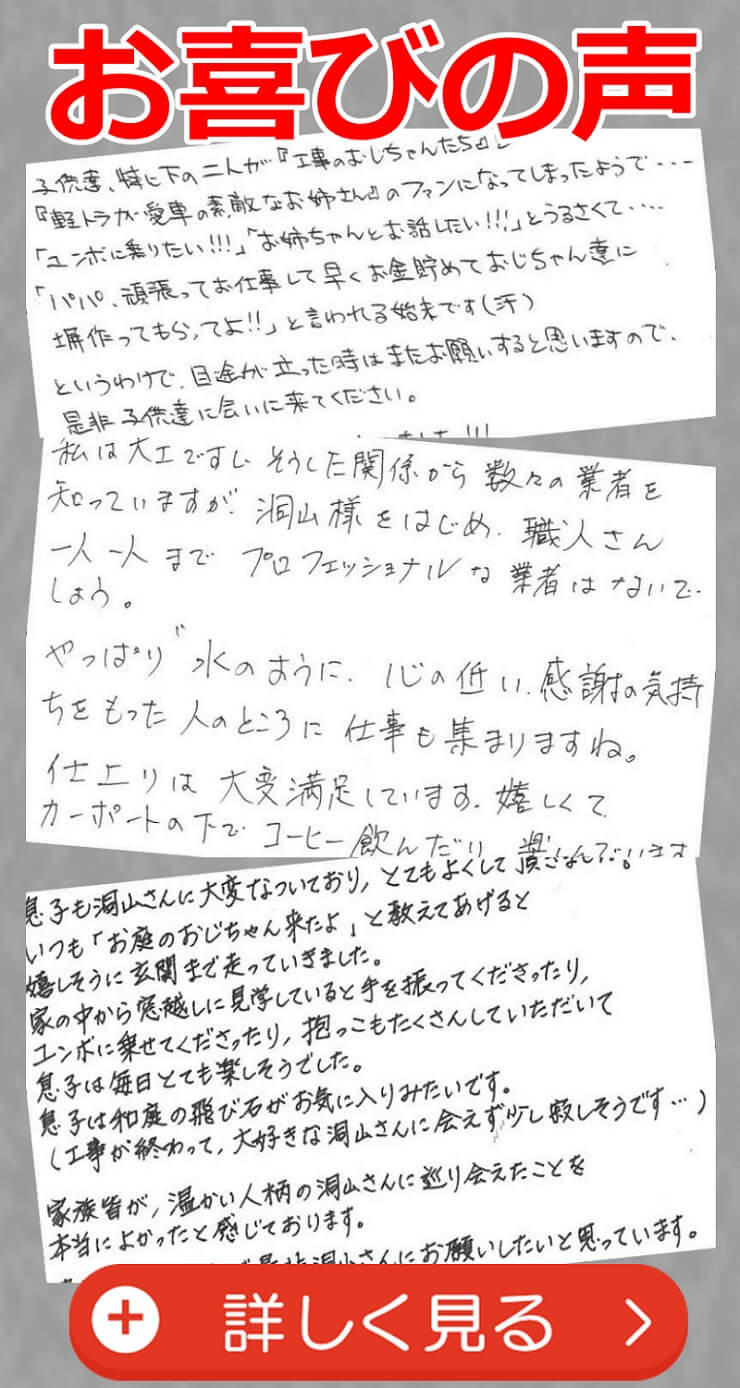 お喜びの声
子供達、特に下の二人が『工事のおじちゃんたち』と
『軽トラが愛車の素敵なお姉さん』のファンになってしまったようで・・・
「ユンボに乗りたい!!!」「お姉ちゃんとお話したい!!!」とうるさくて・・・・
「パパ、頑張ってお仕事して早くお金貯めておじちゃん達に
塀作ってもらってよ!!」と言われる始末です(汗)
というわけで、目途が立った時はまたお願いすると思いますので、
是非子供達に会いに来てください。
私は大工ですし そうした関係から 数々の業者を
知っていますが、洞山様をはじめ、職人さん
一人一人まで プロフェッショナルな業者はないで
しょう。
やっぱり 水のように、心の低い、感謝の気持
ちをもった人のところに 仕事も集まりますね。
仕上りは 大変満足しています。嬉しくて
カーポートの下で コーヒー飲んだり
息子も洞山さんに大変なついており、とてもよくして
いつも「お庭のおじちゃん来たよ」と教えてあげると
嬉しそうに玄関まで走っていきました。
家の中から窓越しに見学していると手を振ってくださったり、
ユンボに乗せてくださったり、抱っこもたくさんしていただいて
息子は毎日とても楽しそうでした。
息子は和庭の飛び石がお気に入りみたいです。
(工事が終わって、大好きな洞山さんに会えず少し寂しそうです…)
家族皆が、温かい人柄の洞山さんに巡り会えたことを
本当によかったと感じております。
是非洞山さんにお願いしたいと思っています。
詳しく見る